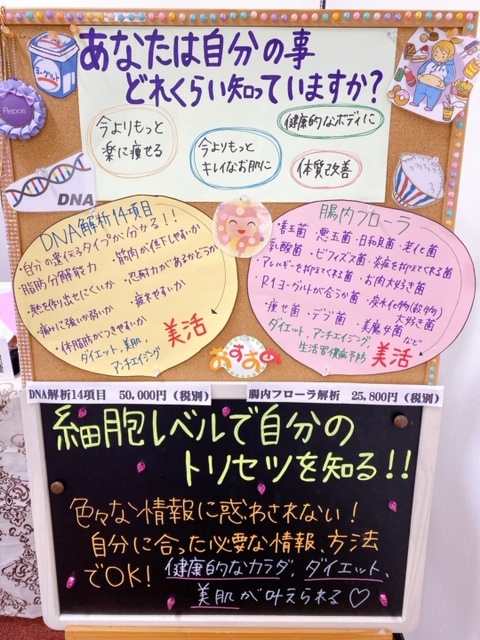 あなたは自分の事
どれくらい知っていますか?
ヨーグルト
今よりもっと
楽に痩せる
今よりもっと
キレイなお肌に
健康的なボディに
体質改善
DNA
DNA解析14項目
・自分の覚えるタイプが分かる!!
脂肪分解能力
・筋肉が低下しやすいか
・熱を作り出せにくいか
・忍耐力があるかどうか
・痛みに強いか弱いか
・疲れやすいか
・体脂肪がつきやすいか
ダイエット、美肌、
アンチエイジング
美活
腸内フローラ
・善玉菌・悪玉菌・日和見菌・老化菌
・乳酸菌・ビフィズス菌・炎症を抑えてくれる菌
・アレルギーを抑えてくれる菌・お肉大好き菌
・R1ヨーグルトが合うか菌・炭水化物(穀物)
大好き菌
・痩せ菌・デブ菌・美魔女菌など
ダイエット、アンチエイジング、
生活習慣病予防
美活
おすすめ
DNA解析14項目 50,000円(税別)
腸内フローラ解析 25,800円(税別)
細胞レベルで自分の
トリセツを知る!!
色々な情報に惑わされない!
自分に合った必要な情報、方法
でOK!
健康的なカラダ、ダイエット、
美肌が叶えられる♡